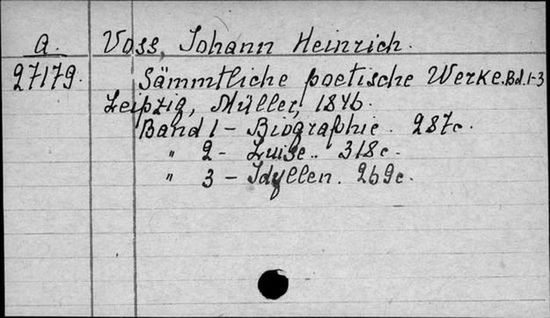 a. Voss, Johann Heinrich.
27179. Sämmtliche poetische Werke. Bd. 1-3
Leipzig, Müller, 1846.
Band 1 - Biographie. 287c.
" 2 - Luise.. 318c.
" 3 - Idyllen. 269c.